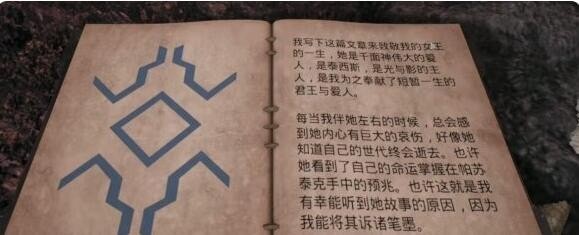 我写下这篇文章来致敬我的女王
的一生，她是千面神伟大的爱
人，是泰西斯，是光与影的主
人，是我为之奉献了短暂一生的
君王与爱人。
每当我伴她左右的时候，总会感
到她内心有巨大的哀伤，好像她
知道自己的世代终会逝去。也许
她看到了自己的命运掌握在帕苏
泰克手中的预兆。也许这就是我
有幸能听到她故事的原因，因为
我能将其诉诸笔墨。